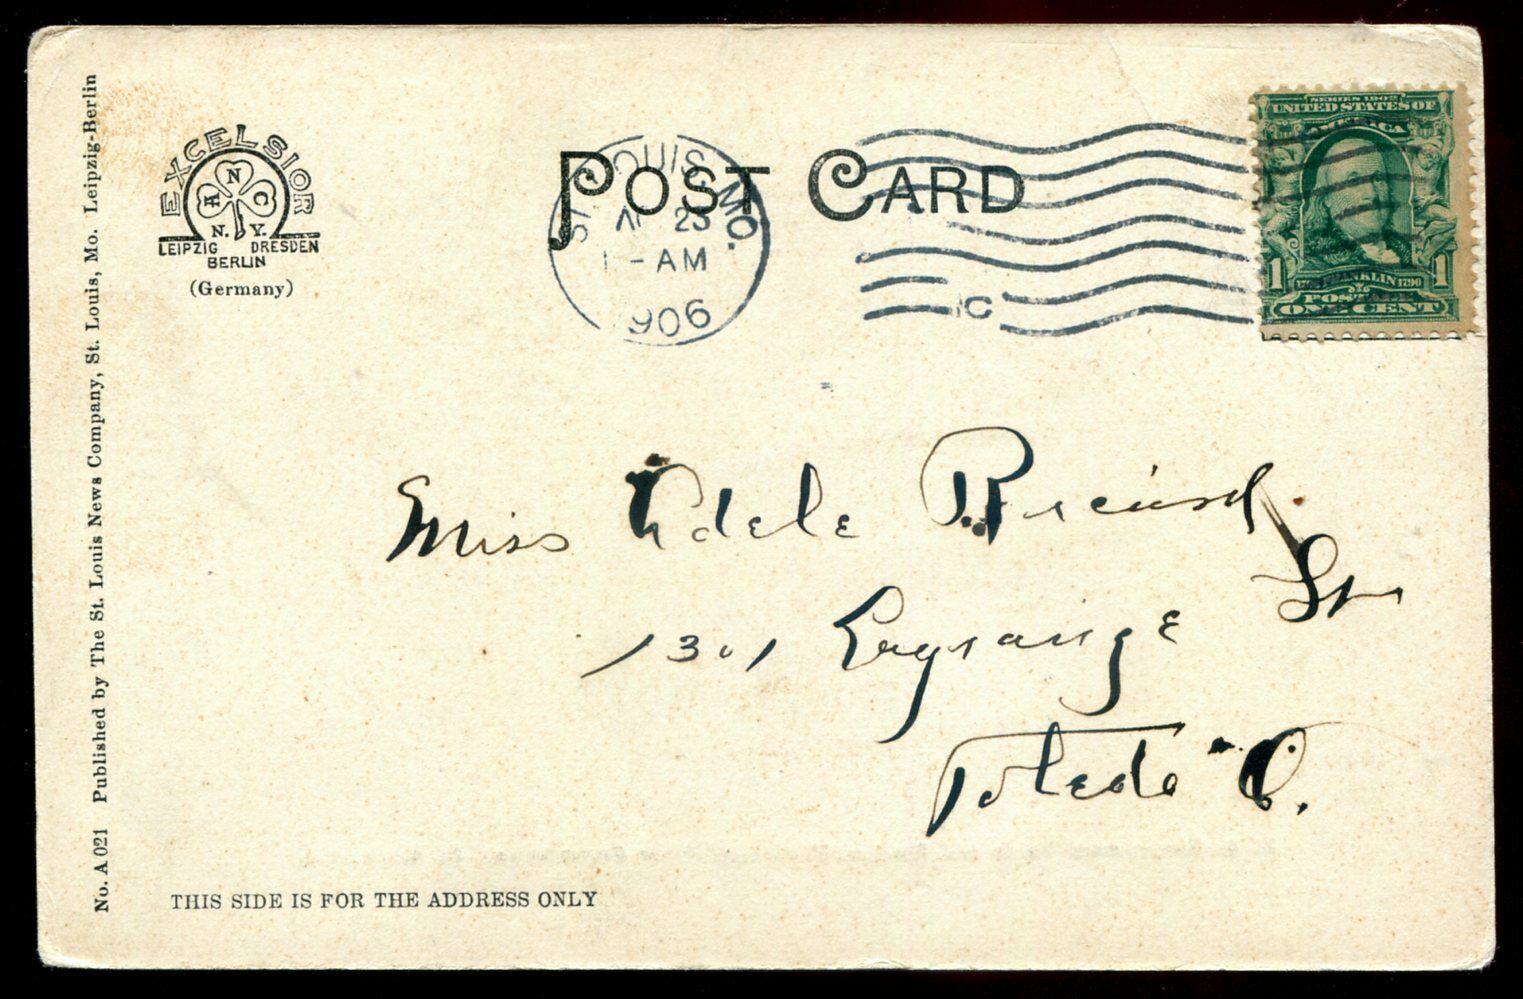 No. A 021 Published by The St. Louis News Company, St. Louis, Mo. Leipzig-Berlin
EXCELSIOR
A N C
N. Y.
LEIPZIG DRESDEN
BERLIN
(Germany)
POST CARD
ST. LOUIS, MO.
23
-AM
906
C
SERIES 1902
UNITED STATES OF
AMERICA
1 FRANKLIN 1790 1
POSTAGE
ONE CENT
Miss Adele
1301 Lagrange St
Toledo O.
THIS SIDE IS FOR THE ADDRESS ONLY